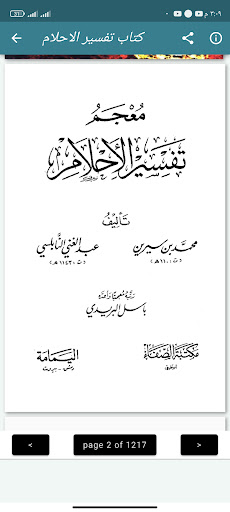 ٣:٠٩ م
كتاب تفسير الاحلام
معجم
تفسير الأحلام
تأليف
محمد بن سيرين عبد الغني النابلسي
(ت ١١٠هـ) (ت ١١٤٣هـ)
رتبه معجميا وأعده
باسل البريدي
مكتبة الصفاء اليمامة
أبوظبي دمش - بيروت
< page 2 of 1217 >